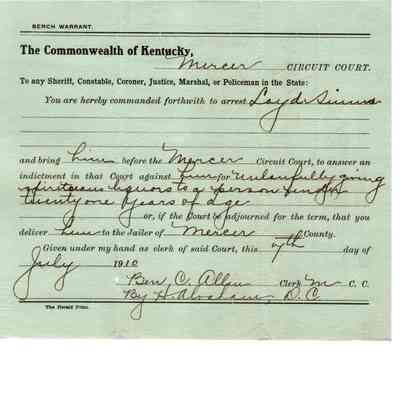 BENCH WARRANT.
The Commonwealth of Kentucky,
Mercer CIRCUIT COURT.
To any Sheriff, Constable, Coroner, Justice, Marshal, or Policeman in the State:
You are hereby commanded forthwith to arrest Loyd Simms
and bring him before the Mercer Circuit Court, to answer an
indictment in that Court against him for Unlawfully giving
spirituous liquors to a person under
twenty one years of age
or, if the Court be adjourned for the term, that you
deliver him to the Jailer of Mercer County.
Given under my hand as clerk of said Court, this 7th day of
July 1910
Ben C. Allen Clerk M C. C.
By H. Abraham, D. C.
The Herald Print.